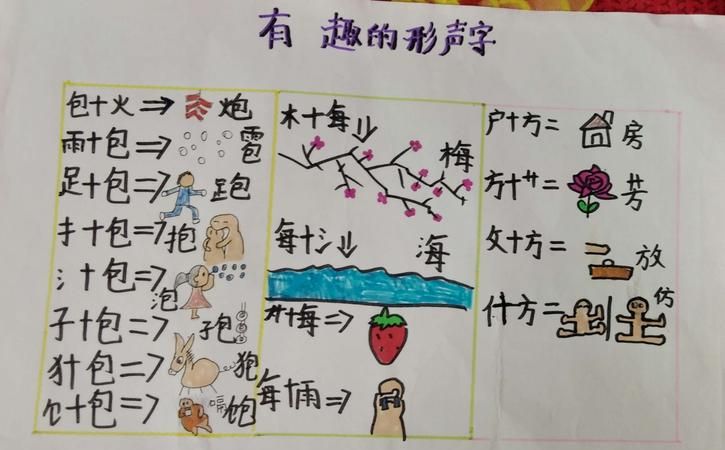 有趣的形声字
包+火⇒炮
雨+包⇒雹
足+包⇒跑
扌+包⇒抱
氵+包⇒泡
子+包⇒孢
犭+包⇒狍
饣+包⇒嗝饱
木+每⇓梅
每+氵⇓海
艹+每⇒
每+雨⇒
户+方=房
方+艹=芳
攵+方=放
亻+方=仿